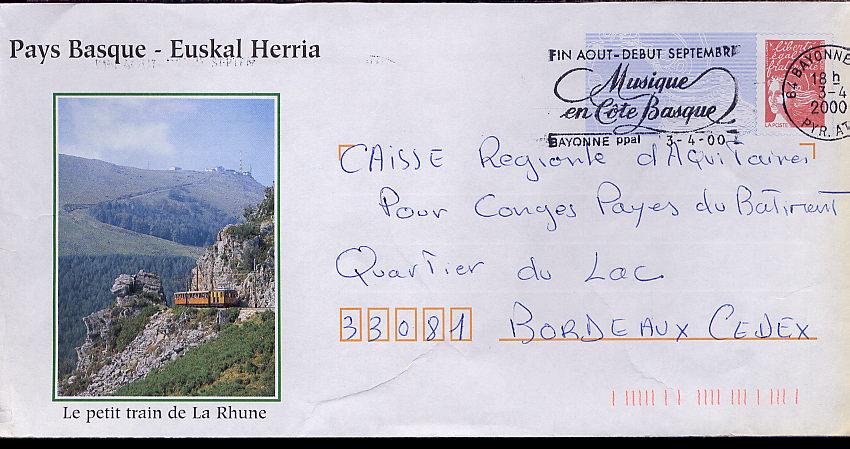 Pays Basque - Euskal Herria
FIN AOUT-DEBUT SEPTEMBRE
Musique
en Côte Basque
BAYONNE ppal 3-4-00
liberté
égalité
LA POSTE
64 BAYONNE
18 h
3-4
2000
PYR. AT
CAISSE Regionle d'Aquitaines
Pour Conges Payes du Batiment
Quartier du Lac
33081 BORDEAUX CEDEX
Le petit train de La Rhune